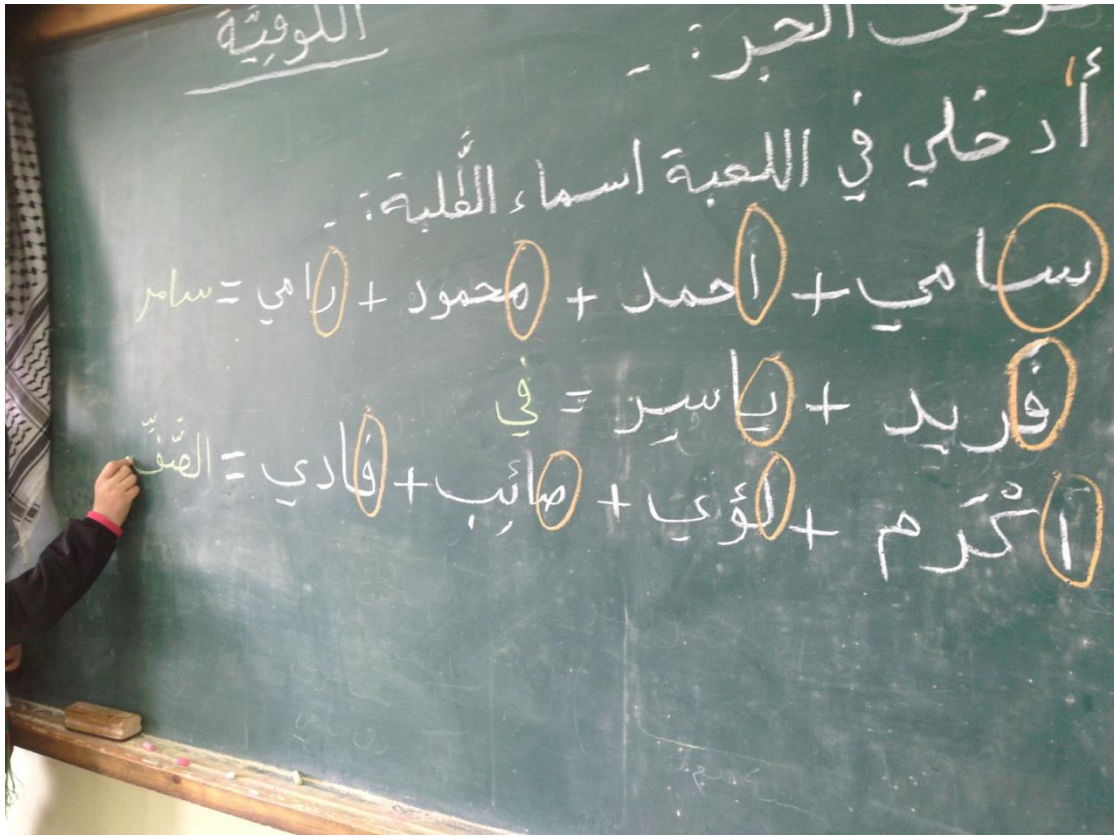 الكوفيّة
حروف الجر : -
أدخلي في اللعبة اسماء الطَّلبة : -
سامي + احمد + محمود + رامي = سامر
فريد + ياسير = في
اكْرَم + لؤي + صائِب + فادي = الصَّفِّ